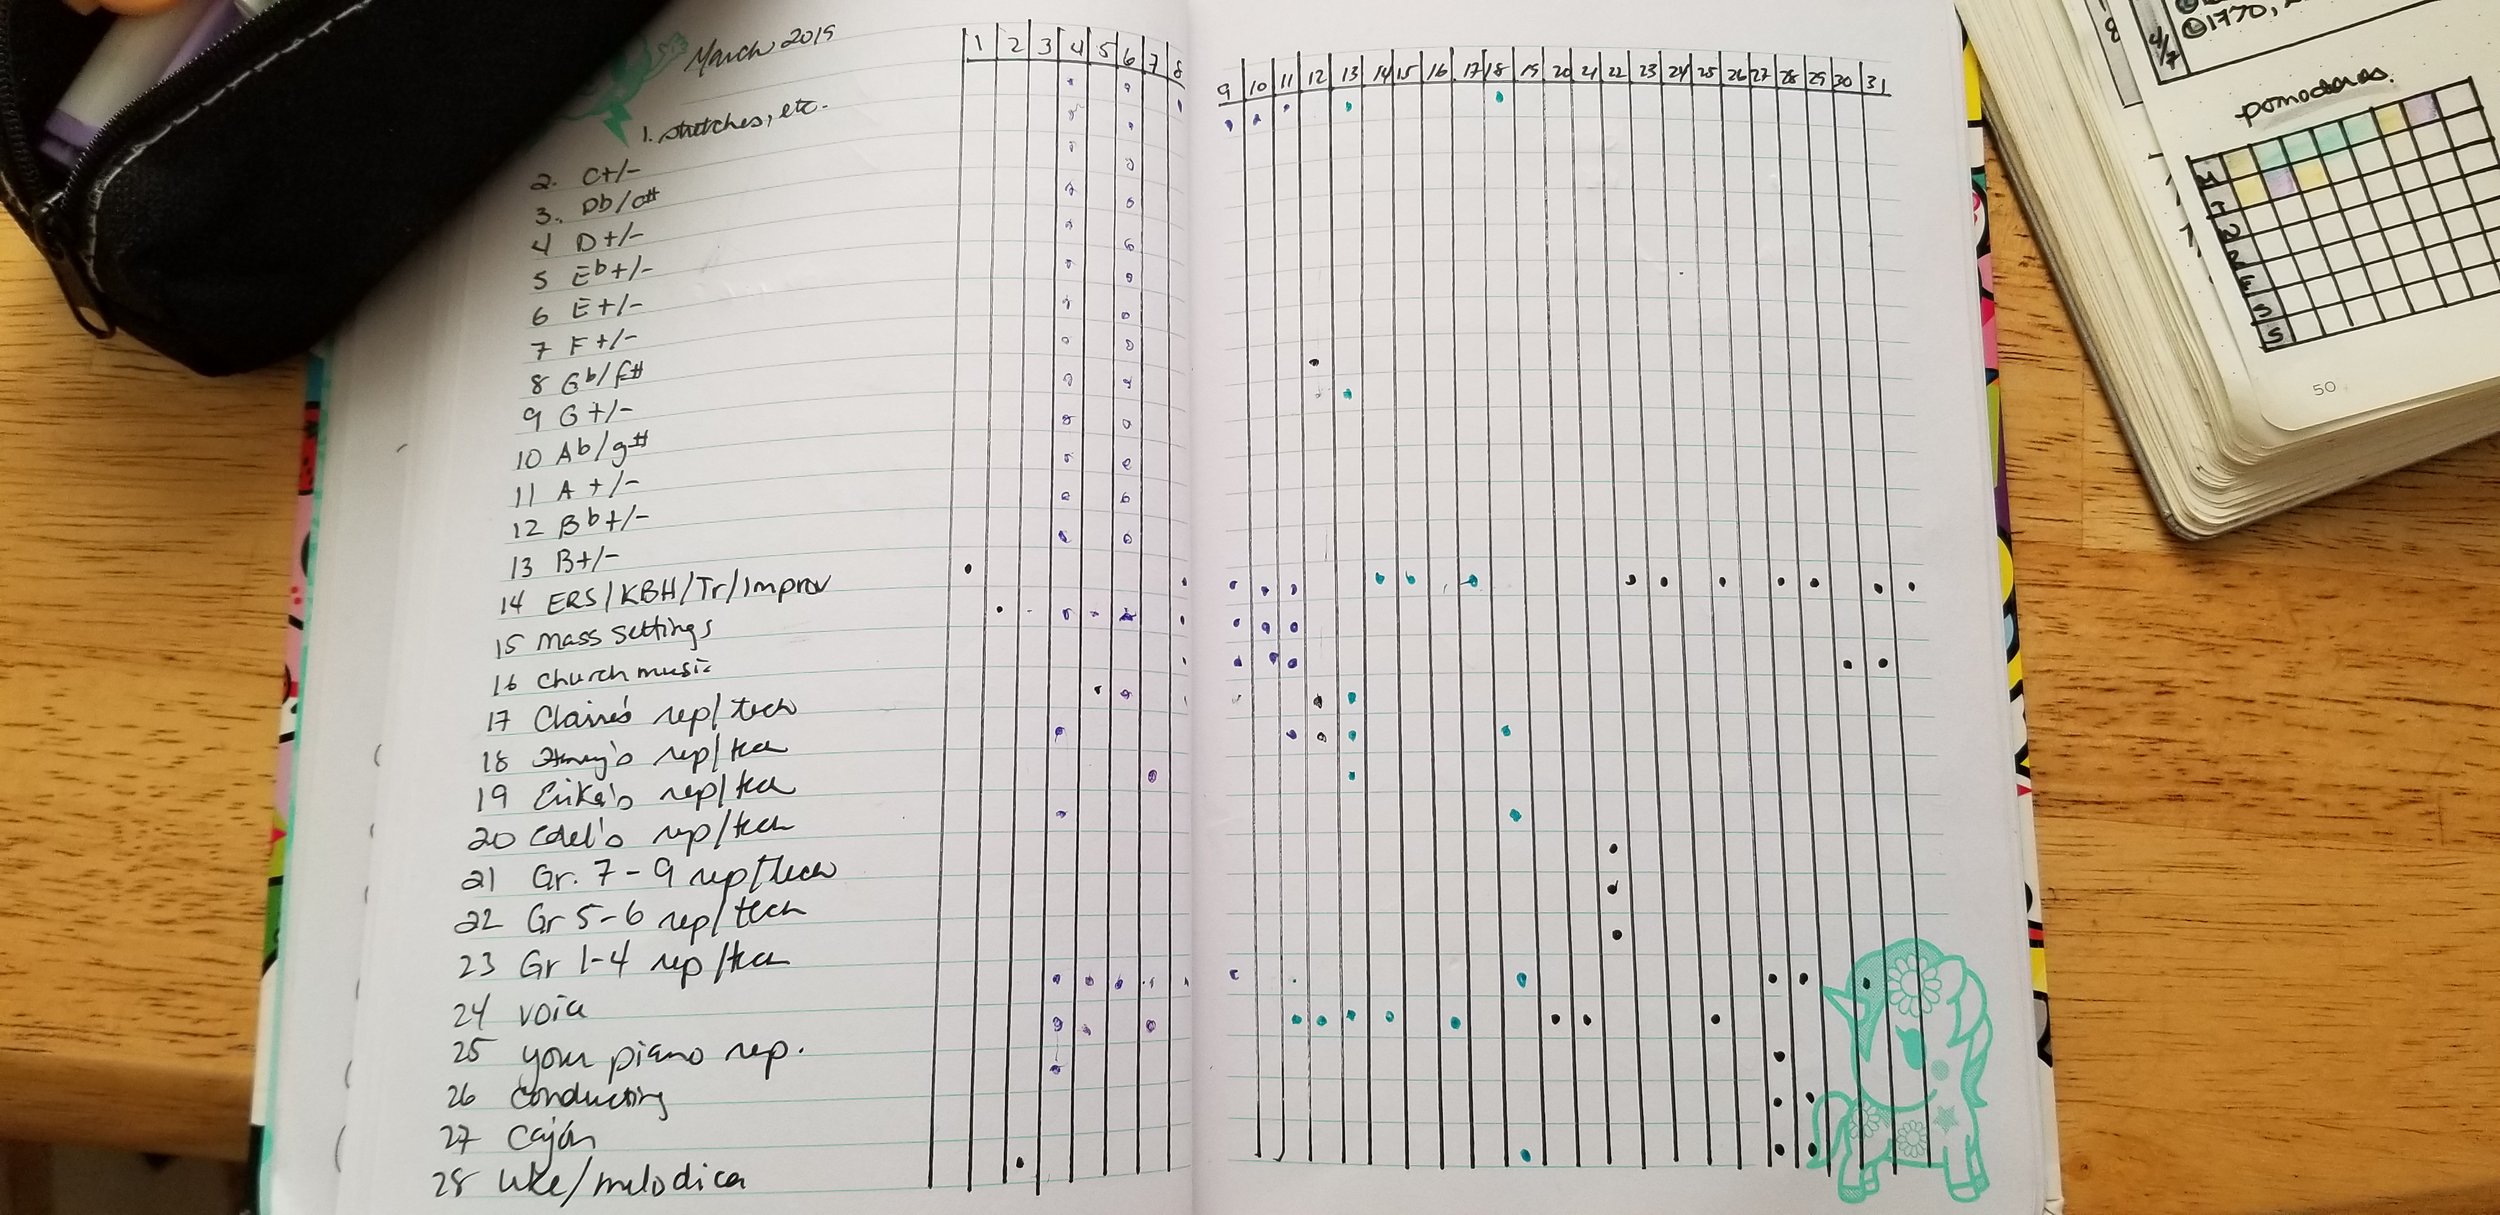 March 2019
1 2 3 4 5 6 7 8 9 10 11 12 13 14 15 16 17 18 19 20 21 22 23 24 25 26 27 28 29 30 31
1. stretches, etc.
2. C+/-
3. Db/c#
4 D+/-
5 Eb+/-
6 E+/-
7 F+/-
8 Gb/f#
9 G+/-
10 Ab/g#
11 A +/-
12 Bb+/-
13 B+/-
14 ERS/KBH/Tr/Improv
15 Mass settings
16 Church music
17 Claire's rep/tech
18 rep/tech
19 Erika's rep/tech
20 rep/tech
21 Gr. 7-9 rep/tech
22 Gr 5-6 rep/tech
23 Gr 1-4 rep/tech
24 voice
25 your piano rep.
26 Conducting
27 Cajón
28 Uke/melodica
4/7
1770,
pomodoros.
50